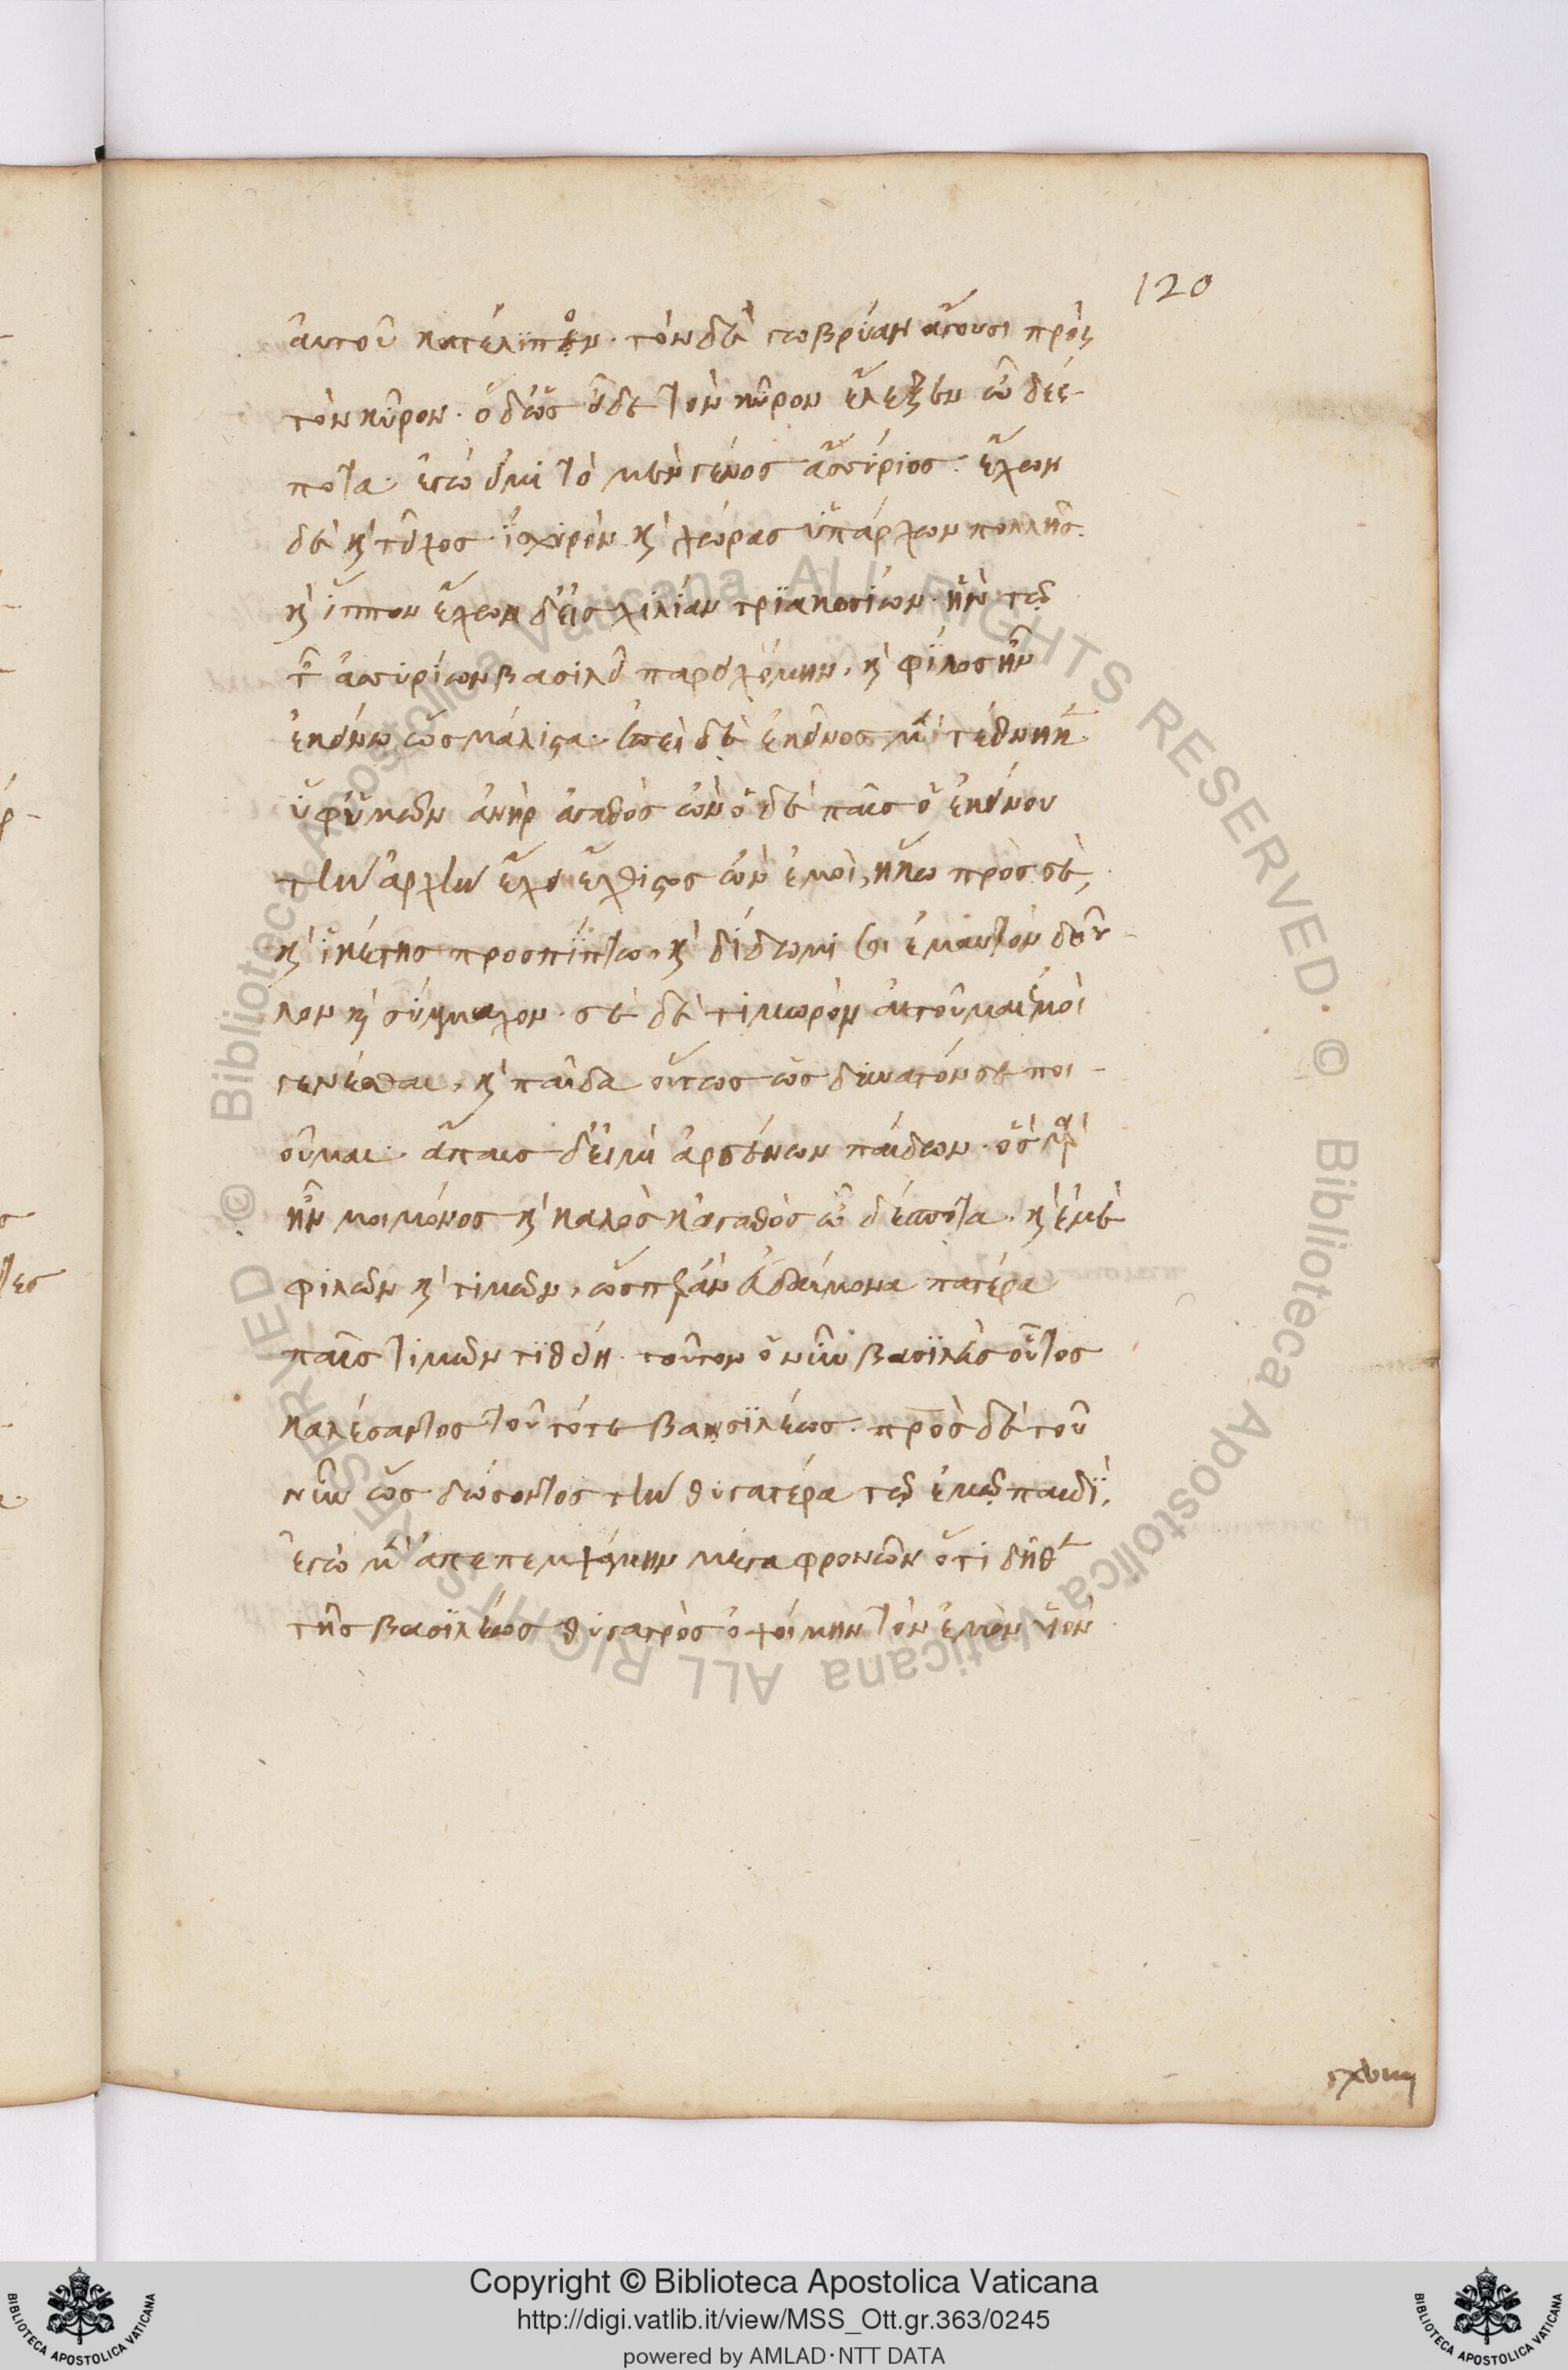 120
αὐτοῦ κατέλιπον· τὸν δὲ γωβρύαν ἄγουσι πρὸς
τὸν κῦρον· ὁ δ' ὡς εἶδε τὸν κῦρον ἔλεξεν ὦ δέσ-
ποτα· ἐγώ εἰμι τὸ μὲν γένος ἀσσύριος· ἔχων
δὲ καὶ τεῖχος ἰσχυρὸν καὶ χώρας ὑπάρχων πολλῆς·
καὶ ἵππον ἔχων εἰς χιλίαν τριακοσίων· ἣν τῷ
τῶν ἀσσυρίων βασιλεῖ παρειχόμην, καὶ φίλος ἦν
ἐκείνω ὡς μάλιστα· ἐπεὶ δὲ ἐκεῖνος μὲν τέθνηκε
ὑφ' ὑμῶν ἀνὴρ ἀγαθὸς ὢν ὁ δὲ παῖς ὁ ἐκείνου
τὴν ἀρχὴν ἔχει ἔχθιστος ὢν ἐμοὶ, ἥκω πρὸς σὲ,
καὶ ἱκέτης προσπίπτω, καὶ δίδωμι σοι ἐμαυτὸν δοῦ-
λον καὶ σύμμαχον· σὲ δὲ τιμωρὸν αἰτοῦμαι ἐμοὶ
γενέσθαι, καὶ παῖδα οὕτως ὡς δυνατόν σε ποι-
οῦμαι· ἄπαις δ' εἰμὶ ἀρσένων παίδων· ὃς γὰρ
ἦν μοι μόνος καὶ καλὸς κἀγαθὸς ὦ δέσποτα· καὶ ἐμὲ
φιλῶν καὶ τιμῶν, ὥσπερ ἂν εὐδαίμονα πατέρα
παῖς τιμῶν τιθείη· τοῦτον ὁ νῦν βασιλεὺς οὗτος
καλέσαντος τοῦ τότε βασιλέως· πρὸς δὲ τοῦ
νῦν ὡς δώσοντος τὴν θυγατέρα τῷ ἐμῷ παιδὶ,
ἐγὼ μὲν ἀπεπεμψάμην μέγα φρονῶν ὅτι δῆθεν
τῆς βασιλέως θυγατρὸς ὀψοίμην τὸν ἐμὸν υἱὸν
Copyright © Biblioteca Apostolica Vaticana
http://digi.vatlib.it/view/MSS_Ott.gr.363/0245
powered by AMLAD·NTT DATA